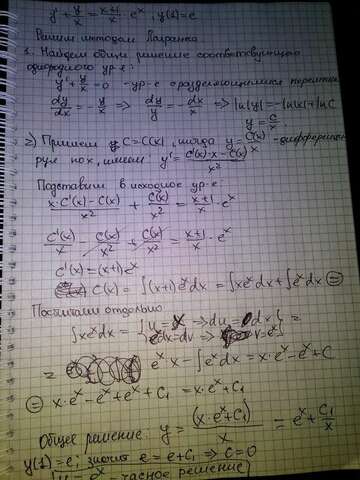 y' + y/x = (x+1)/x · e^x, y(1) = e
Решим методом Лагранжа
1. Найдем общее решение соответствующего
однородного ур-е:
y' + y/x = 0 - ур-е с разделяющимися перемен
dy/dx = -y/x => dy/y = -dx/x => ln|y| = -ln|x| + ln C
y = C/x.
2) Примем C = C(x), тогда y = C(x)/x - дифференци
руя по x, имеем: y' = (C'(x)·x - C(x))/x²
Подставим в исходное ур-е:
(x·C'(x) - C(x))/x² + C(x)/x² = (x+1)/x · e^x
C'(x)/x - C(x)/x² + C(x)/x² = (x+1)/x · e^x
C'(x) = (x+1)e^x
C(x) = ∫(x+1)e^x dx = ∫xe^x dx + ∫e^x dx =
Посчитаем отдельно
∫xe^x dx = {u = x => du = dx; e^x dx = dv => v = e^x} =
= e^x x - ∫e^x dx = x·e^x - e^x + C
= x·e^x - e^x + e^x + C₁ = x·e^x + C₁
Общее решение: y = (x·e^x + C₁)/x = e^x + C₁/x
y(1) = e; значит e = e + C₁ => C = 0
y = e^x - частное решение